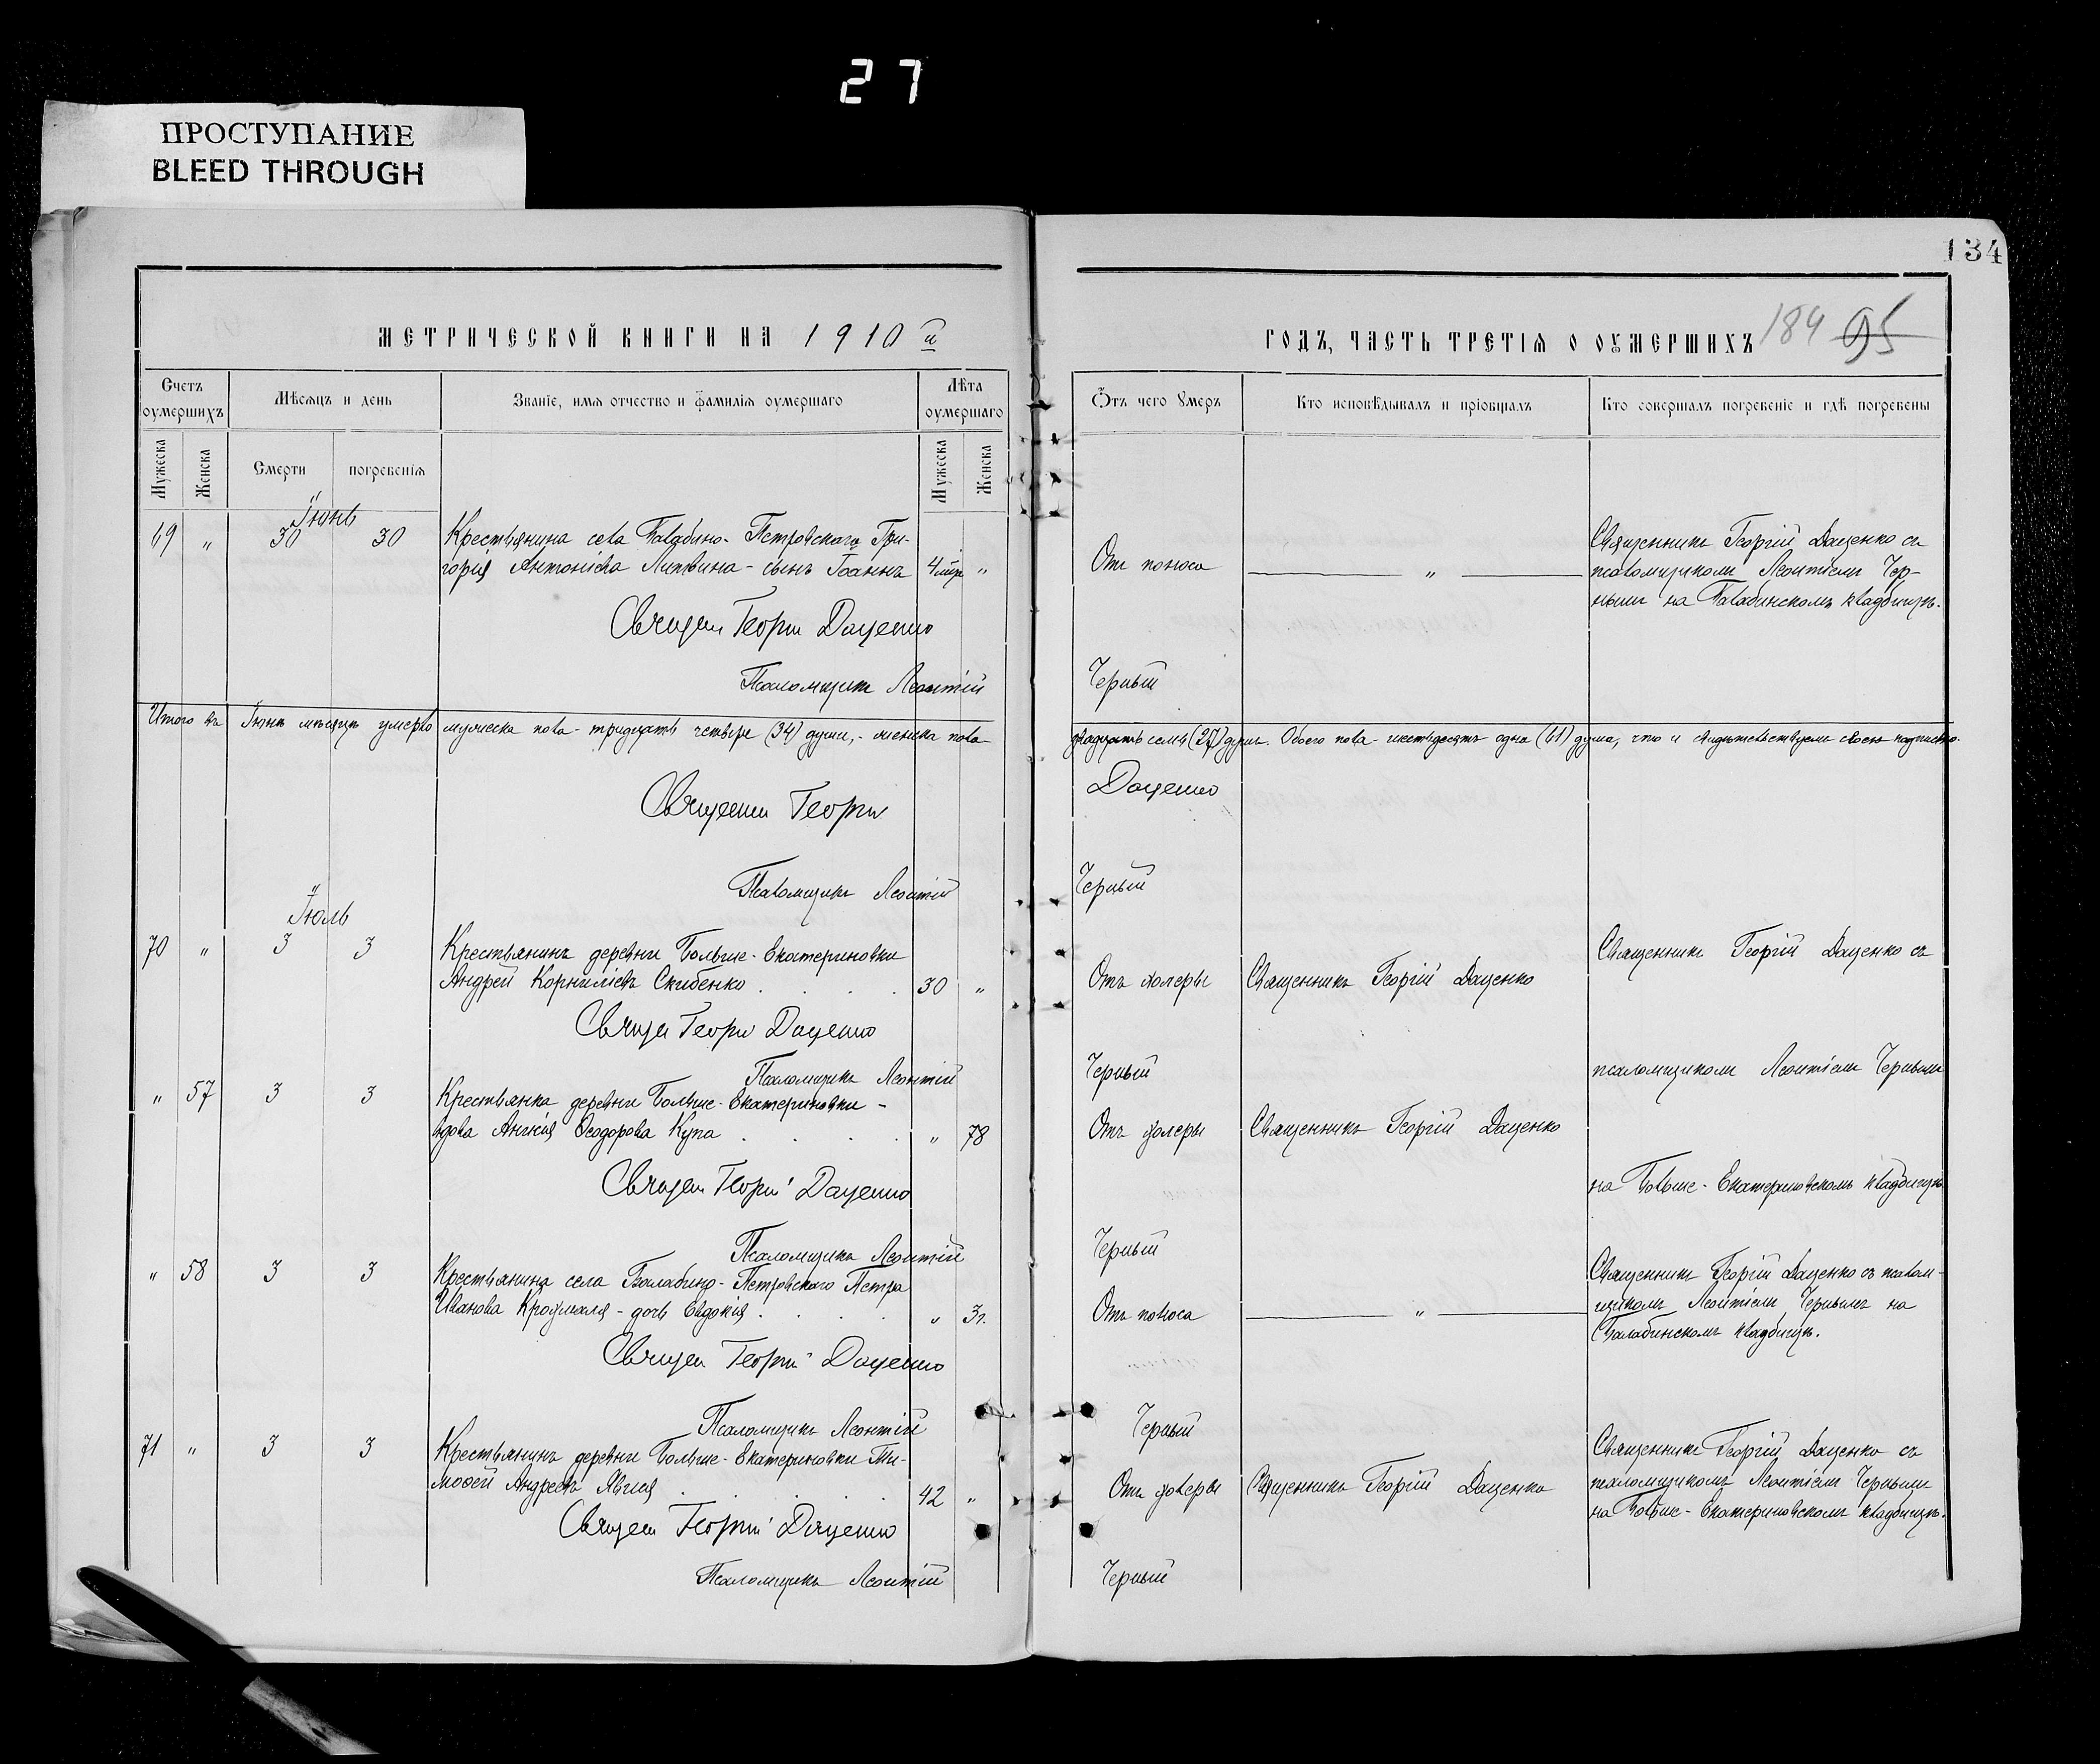 27
ПРОСТУПАНИЕ
BLEED THROUGH
134
МЕТРИЧЕСКОЙ КНИГИ НА 1910 й
ГОДЪ, ЧАСТЬ ТРЕТІЯ О ОУМЕРШИХЪ 184 95
Счетъ оумершихъ
Мѣсяцъ и день
Званіе, имя отчество и фамилія оумершаго
Лѣта оумершаго
Отъ чего умеръ
Кто исповѣдывалъ и пріобщалъ
Кто совершалъ погребеніе и гдѣ погребены
Мужеска Женска Смерти погребенія Мужеска Женска
Іюнь
69 " 30 30
Крестьянина села Балабино-Петровскаго Гри-
горія Антоніева Литвина - сынъ Іоаннъ 4 "
Отъ поноса
"
Священникъ Георгій Даценко съ
псаломщикомъ Леонтіемъ Чер-
нымъ на Балабинскомъ кладбищѣ.
Священ Георгій Даценко
Псаломщикъ Леонтій Черный
Итого въ Іюнѣ мѣсяцѣ умерло мужеска пола - тридцать четыре (34) души, - женска пола
двадцать семь (27) душъ. Обоего пола - шестьдесятъ одна (61) душа, что и свидѣтельствуемъ своею подписью.
Священник Георгій Даценко
Псаломщикъ Леонтій Черный
Іюль
70 " 3 3
Крестьянинъ деревни Больше-Екатериновки
Андрей Корниліевъ Скибенко 30 "
Отъ холеры
Священникъ Георгій Даценко
Священникъ Георгій Даценко съ
Свящ Георгій Даценко
Псаломщикъ Леонтій Черный
псаломщикомъ Леонтіемъ Чернымъ
" 57 3 3
Крестьянка деревни Больше-Екатериновки -
вдова Анисія Ѳеодорова Купа " 78
Отъ холеры
Священникъ Георгій Даценко
на Больше-Екатериновскомъ кладбищѣ
Священ Георгій Даценко
Псаломщикъ Леонтій Черный
" 58 3 3
Крестьянина села Балабино-Петровскаго Петра
Иванова - дочь Евдокія " 3 г.
Отъ поноса
"
Священникъ Георгій Даценко съ псалом-
щикомъ Леонтіемъ Чернымъ на
Балабинскомъ кладбищѣ.
Священ Георгій Даценко
Псаломщикъ Леонтій Черный
71 " 3 3
Крестьянинъ деревни Больше-Екатериновки Ти-
моѳей Андреевъ 42 "
Отъ холеры
Священникъ Георгій Даценко
Священникъ Георгій Даценко съ
псаломщикомъ Леонтіемъ Чернымъ
на Больше-Екатериновскомъ кладбищѣ.
Священ Георгій Даценко
Псаломщикъ Леонтій Черный